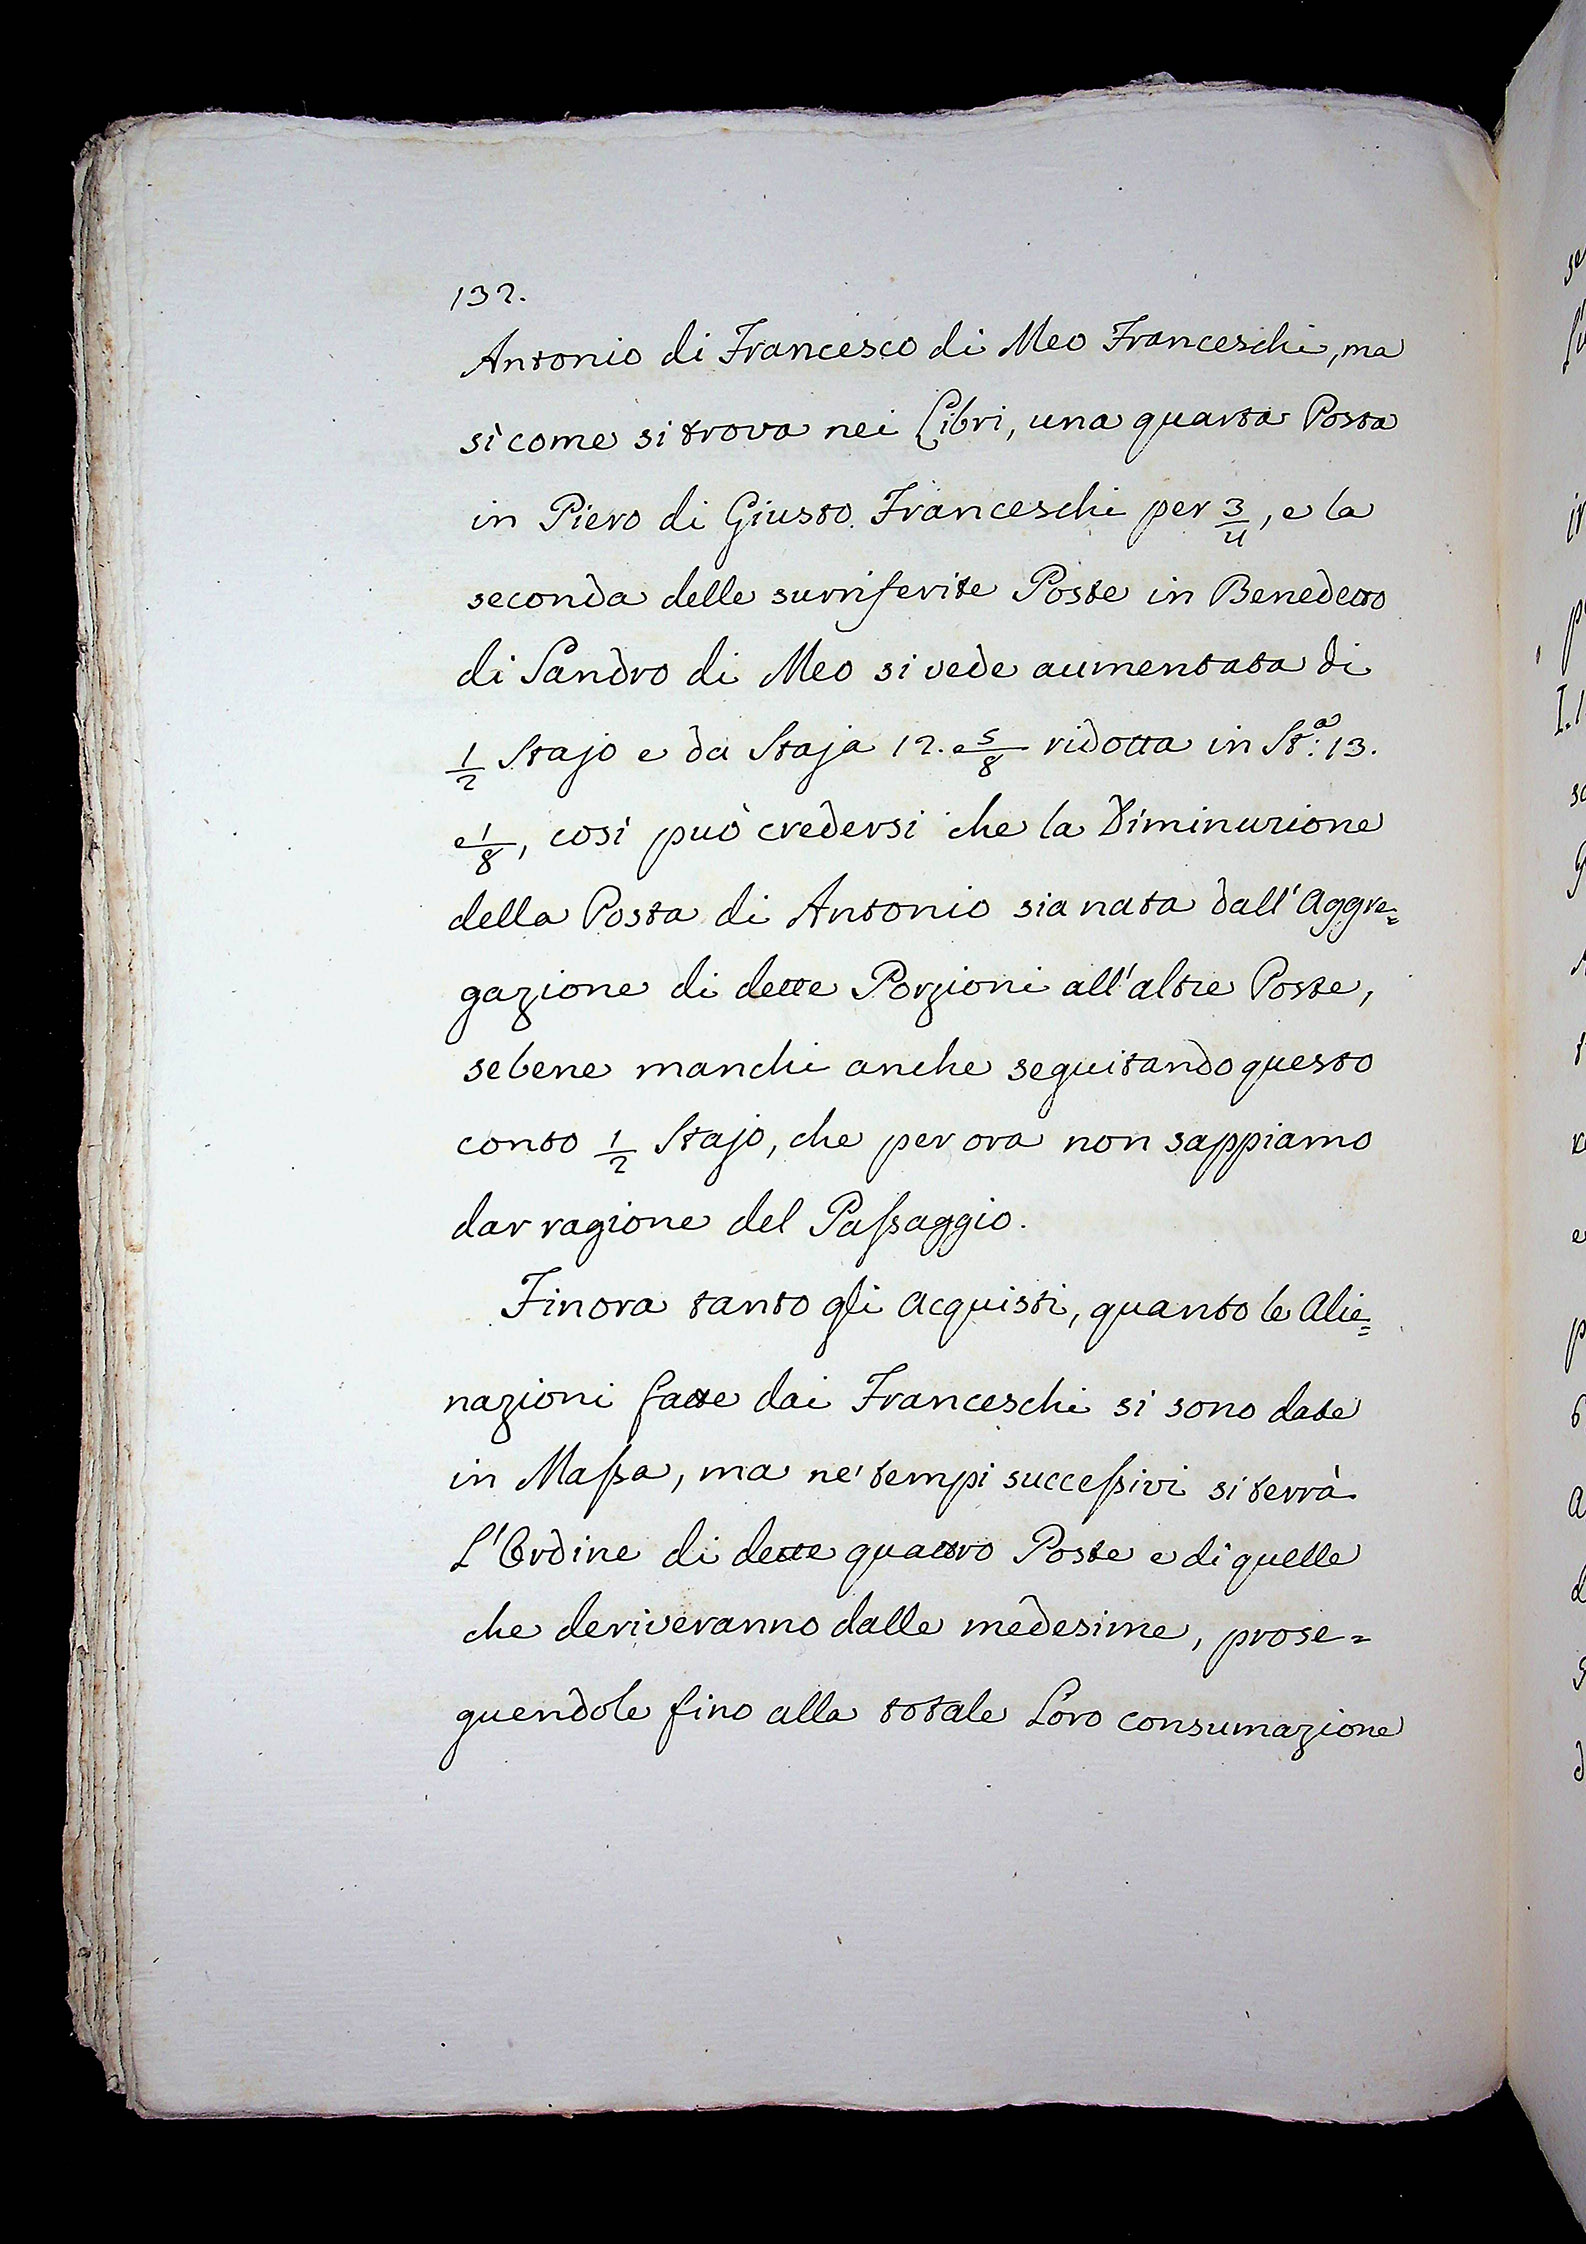 132.
Antonio di Francesco di Meo Franceschi, ma
sì come si trova nei Libri, una quarta Posta
in Piero di Giusto Franceschi per 3/4, e la
seconda delle surriferite Poste in Benedetto
di Sandro di Meo si vede aumentata di
1/2 Stajo e da Staja 12. e 5/8 ridotta in St.ª: 13.
e 1/8, così può credersi che la Diminuzione
della Posta di Antonio sia nata dall'Aggre=
gazione di dette Porzioni all'altre Poste,
sebene manchi anche seguitando questo
conto 1/2 Stajo, che per ora non sappiamo
dar ragione del Paſsaggio.
Finora tanto gli Acquisti, quanto le Alie=
nazioni fatte dai Franceschi si sono date
in Maſsa, ma ne' tempi succeſsivi si terrà
L'Ordine di dette quattro Poste e di quelle
che deriveranno dalle medesime, prose=
guendole fino alla totale Loro consumazione